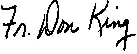 Fr. Don King